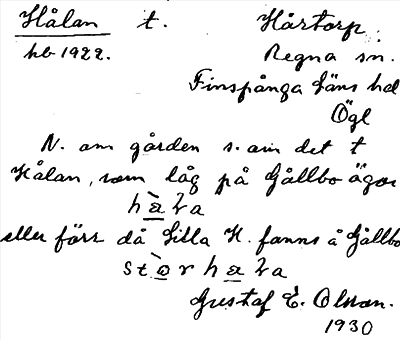 Hålan t. Hårtorp.
hb 1922. Regna sn.
Finspånga läns hd
Ögl
N. om gården s. om det t
Hålan, som låg på Gållbo ägor
eller förr då Lilla H. fanns å Gållbo
Gustaf E. Olson.
1930